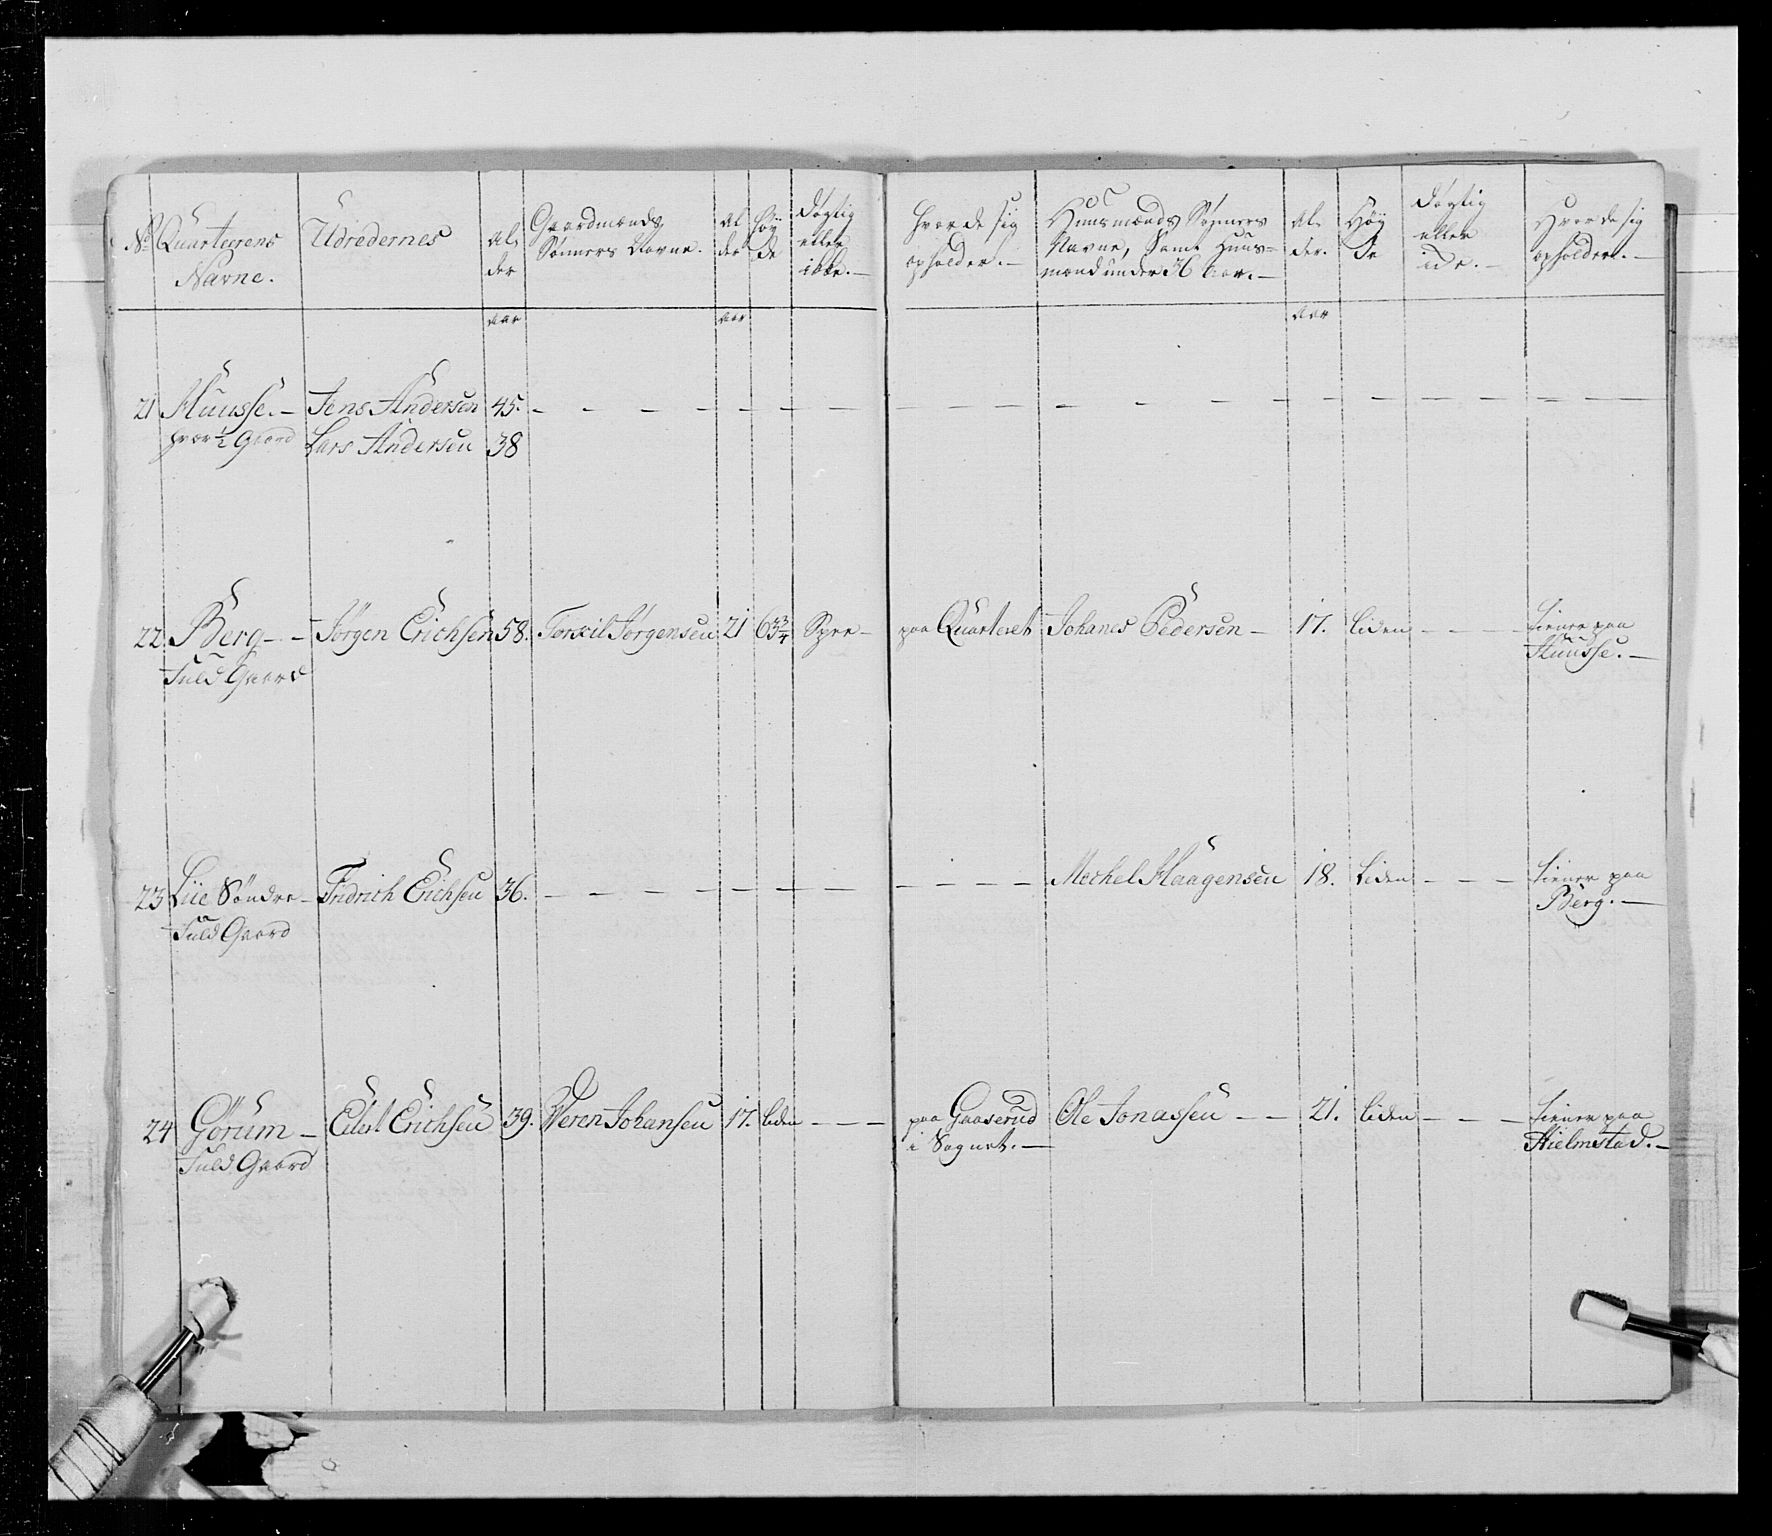 No Quarteerens Navne.
Udredernes
Al der
Gaardmænds Sønners Navne.
Al der
Høy de
Dygtig eller ikke.—
Hvor de sig opholder.—
Huusmænds Sønners Navne, Samt Huusmænd under 36 Aar.—
Al der.
Høy de
Dygtig eller
Hvor de sig opholder.—
aar
aar
aar
21 Huusse.— Jens Andersen 45. — — — — — — — — — — — — — — —
hver ½ Gaard Lars Andersen 38
22 Berg — — Jørgen Erichsen 58. Torkil Jørgensen 21 63¾ — paa Quarteret Johanes Pedersen — 17. liden — — — tiener paa
Fuld Gaard Huusse.—
23 Liie Søndre — Fridrich Erichsen 36. — — — — — — — — — — Mechel Haagensen 18. liden — — — tiener paa
Fuld Gaard Berg.—
24 Gørum — Erichsen 39. Johansen 17. liden — — — paa Gaaserud Ole Jonassen — — 21. liden — — — tiener paa
Fuld Gaard i Sognet.— Hielmstad.—